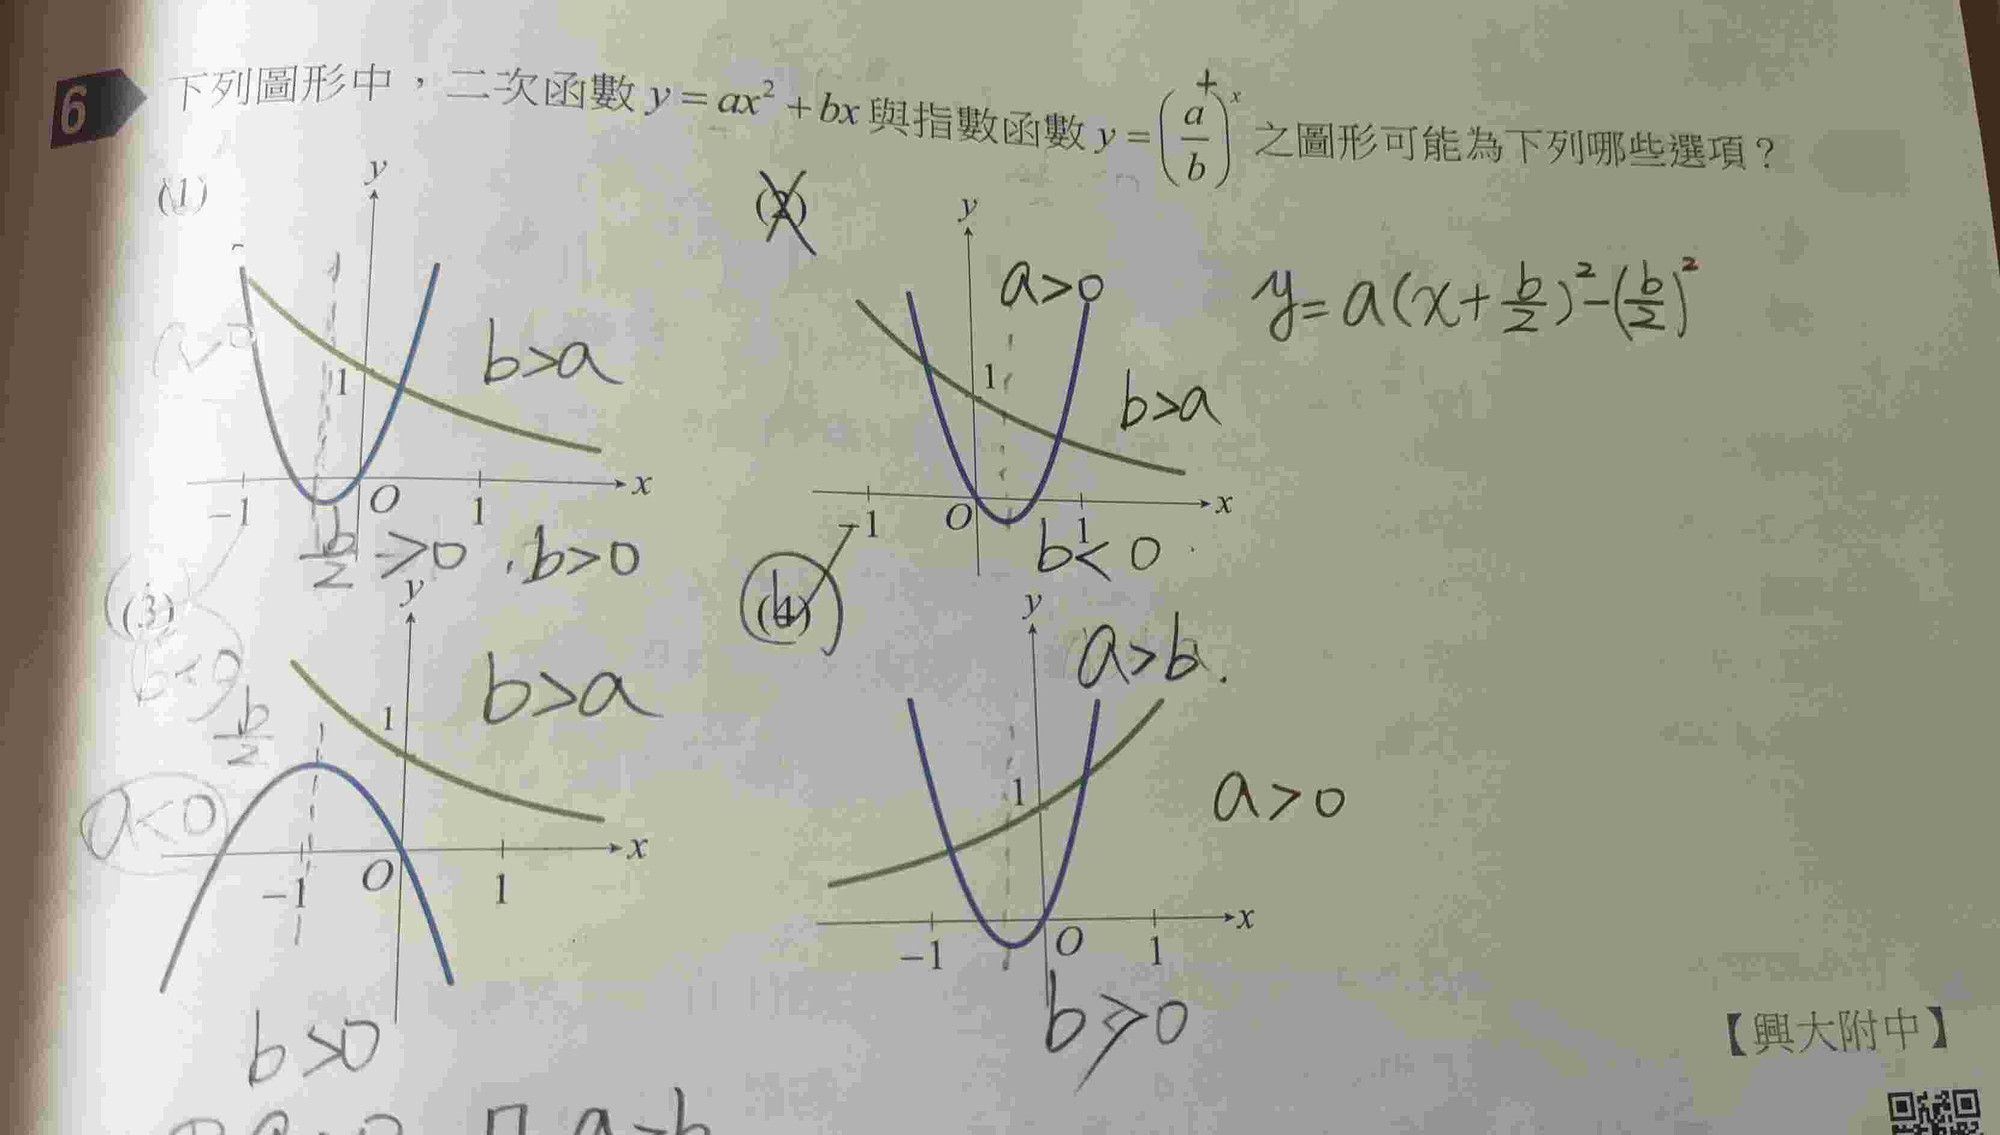 6 下列圖形中，二次函數 y = ax² + bx 與指數函數 y = (a/b)ˣ 之圖形可能為下列哪些選項？
+
(1) y
(2) y
a>0
y = a(x + b/2)² - (b/2)²
b>a
1
1
b>a
-1 O 1 x
-1 O 1 x
b/2 >0 . b>0
b<0
(3) y
(4) y
a>b.
b<0
b/2
b>a
1
1
a>0
a<0
-1 O 1 x
-1 O 1 x
b>0
b>0
【興大附中】